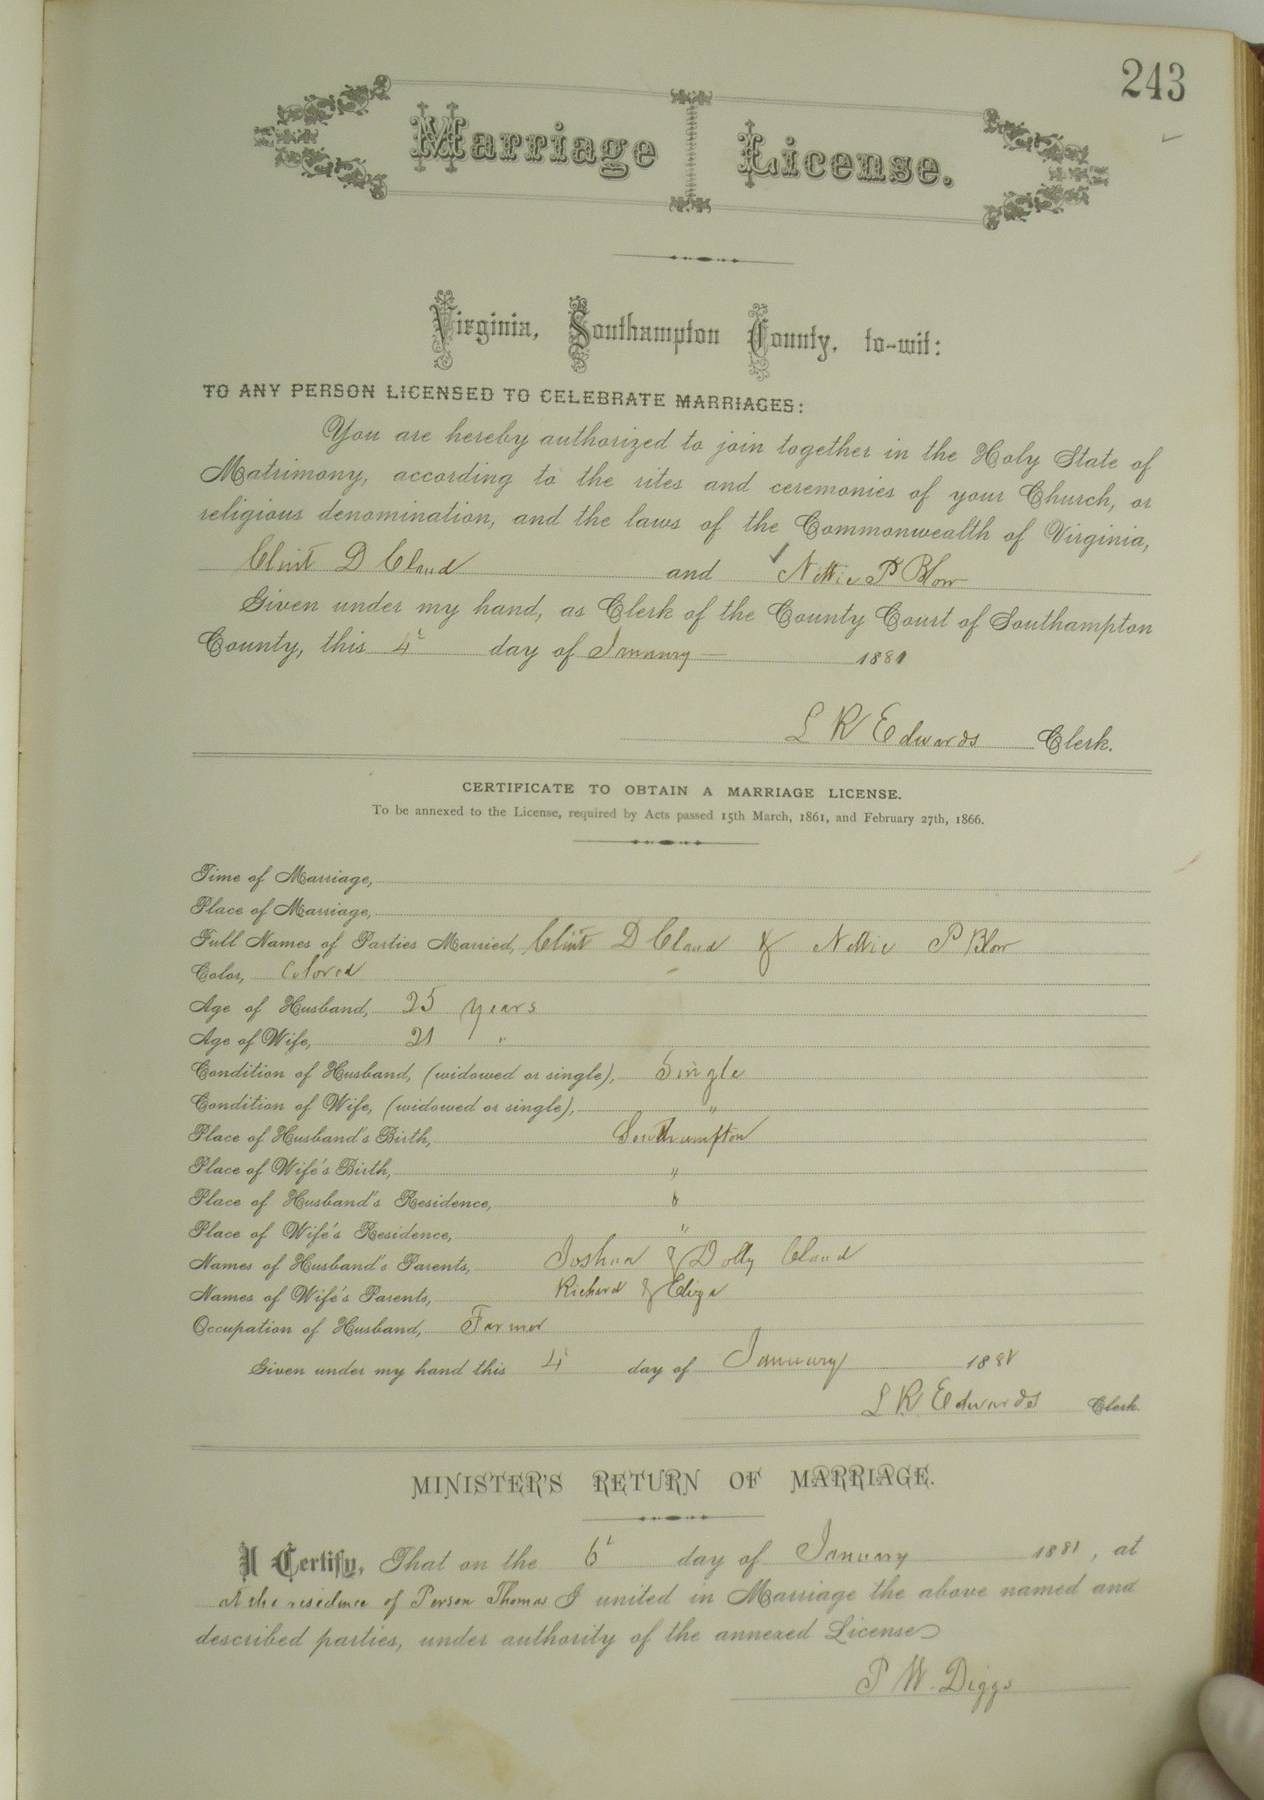 243
Marriage License.
Virginia, Southampton County, to-wit:
TO ANY PERSON LICENSED TO CELEBRATE MARRIAGES:
You are hereby authorized to join together in the Holy State of
Matrimony, according to the rites and ceremonies of your Church, or
religious denomination, and the laws of the Commonwealth of Virginia,
Clint D Claud and Nettie P Blow
Given under my hand, as Clerk of the County Court of Southampton
County, this 4t day of January 1881
L R Edwards Clerk.
CERTIFICATE TO OBTAIN A MARRIAGE LICENSE.
To be annexed to the License, required by Acts passed 15th March, 1861, and February 27th, 1866.
Time of Marriage,
Place of Marriage,
Full Names of Parties Married, Clint D Claud & Nettie P Blow
Color, Colored
Age of Husband, 25 years
Age of Wife, 21 "
Condition of Husband, (widowed or single), Single
Condition of Wife, (widowed or single), "
Place of Husband's Birth, Southampton
Place of Wife's Birth, "
Place of Husband's Residence, "
Place of Wife's Residence, "
Names of Husband's Parents, Joshua & Dolly Claud
Names of Wife's Parents, Richard & Eliza
Occupation of Husband, Farmer
Given under my hand this 4t day of January 1881
L R Edwards Clerk.
MINISTER'S RETURN OF MARRIAGE.
I Certify, That on the 6t day of January 1881, at
At the residence of Person Thomas I united in Marriage the above named and
described parties, under authority of the annexed License
P W. Diggs